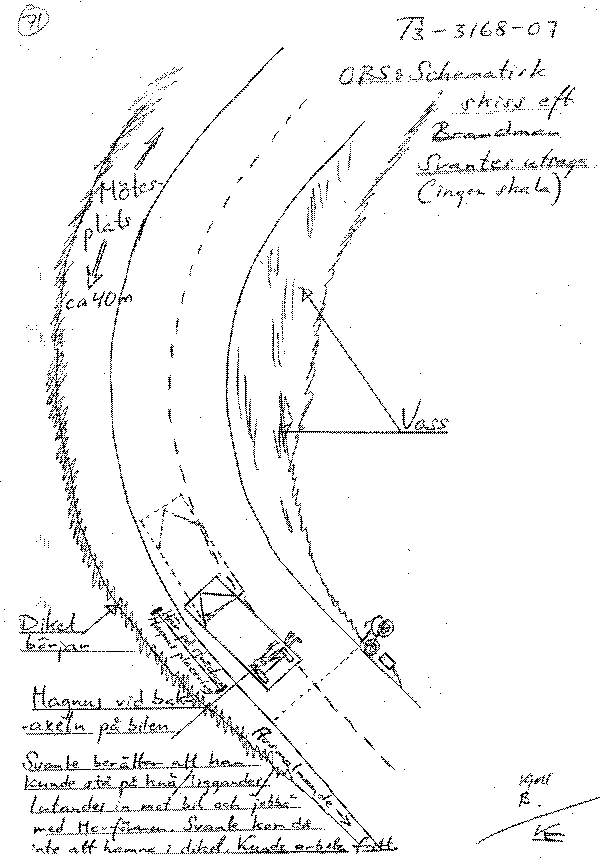 71
T3-3168-07
OBS: Schematisk
skiss eft
Brandman
Svantes utsaga
(ingen skala)
Mötes-
plats
ca 40 m
Vass
Diket
börjar
Magnus vid bak-
-axeln på bilen
Svante berättar att han
kunde stå på knä/liggandes
lutandes in mot bil och jobba
med Mc-föraren. Svante kom då
inte att hamna i diket. Kunde arbeta